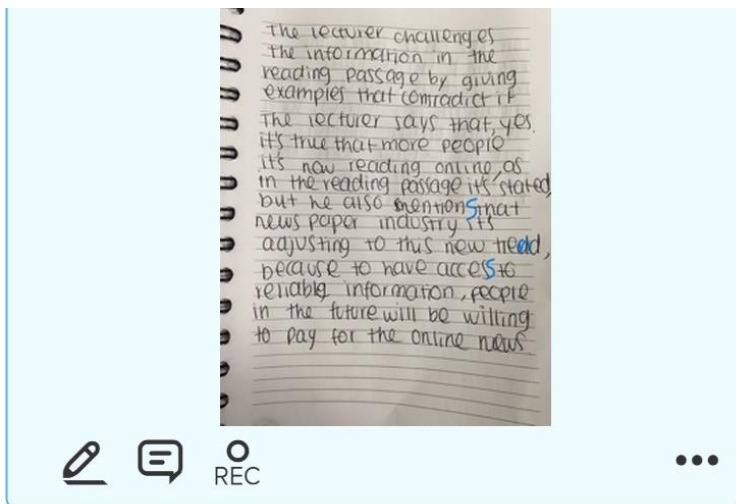 The lecturer challenges
the information in the
reading passage by giving
examples that contradict it
The lecturer says that, yes.
it's true that more people
it's now reading online, as
in the reading passage it's stated,
but he also mentions that
news paper industry its
adjusting to this new tread,
because to have access to
reliable information, people
in the future will be willing
to pay for the online news
REC